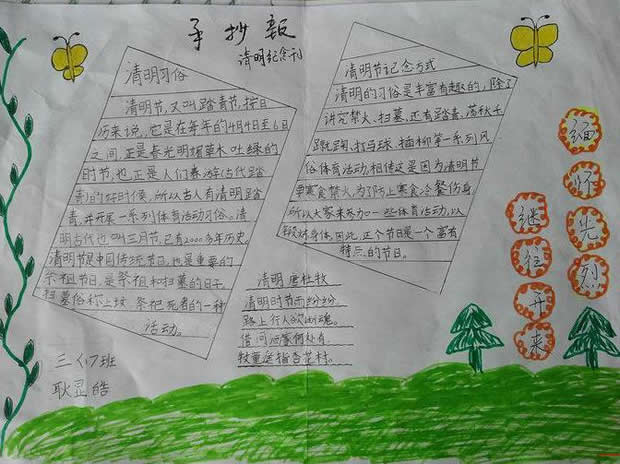 手抄报
清明纪念刊
清明习俗
清明节,又叫踏青节,按日
历来说,它是在每年的4月4日至6日
之间,正是春光明媚草木吐绿的
时节,也正是人们春游(古代踏
青)的好时候,所以古人有清明踏
青,并开展一系列体育活动习俗。清
明古代也叫三月节,已有2000多年历史。
清明节是中国传统节日,也是重要的
祭祖节日,是祭祖和扫墓的日子。
扫墓俗称上坟,祭祀死者的一种
活动。
清明节纪念方式
清明的习俗是丰富有趣的,除了
讲究禁火、扫墓,还有踏青、荡秋千
蹴鞠、打马球、插柳第一系列风
俗体育活动,相传这是因为清明节
要寒食禁火,为了防止寒食冷餐伤身,
所以大家来参加一些体育活动,以
锻炼身体。因此,正个节日是一个富有
特点的节日。
清明 唐杜牧
清明时节雨纷纷,
路上行人欲断魂。
借问酒家何处有
牧童遥指杏花村。
三(7)班
耿显皓
缅怀先烈
继往开来